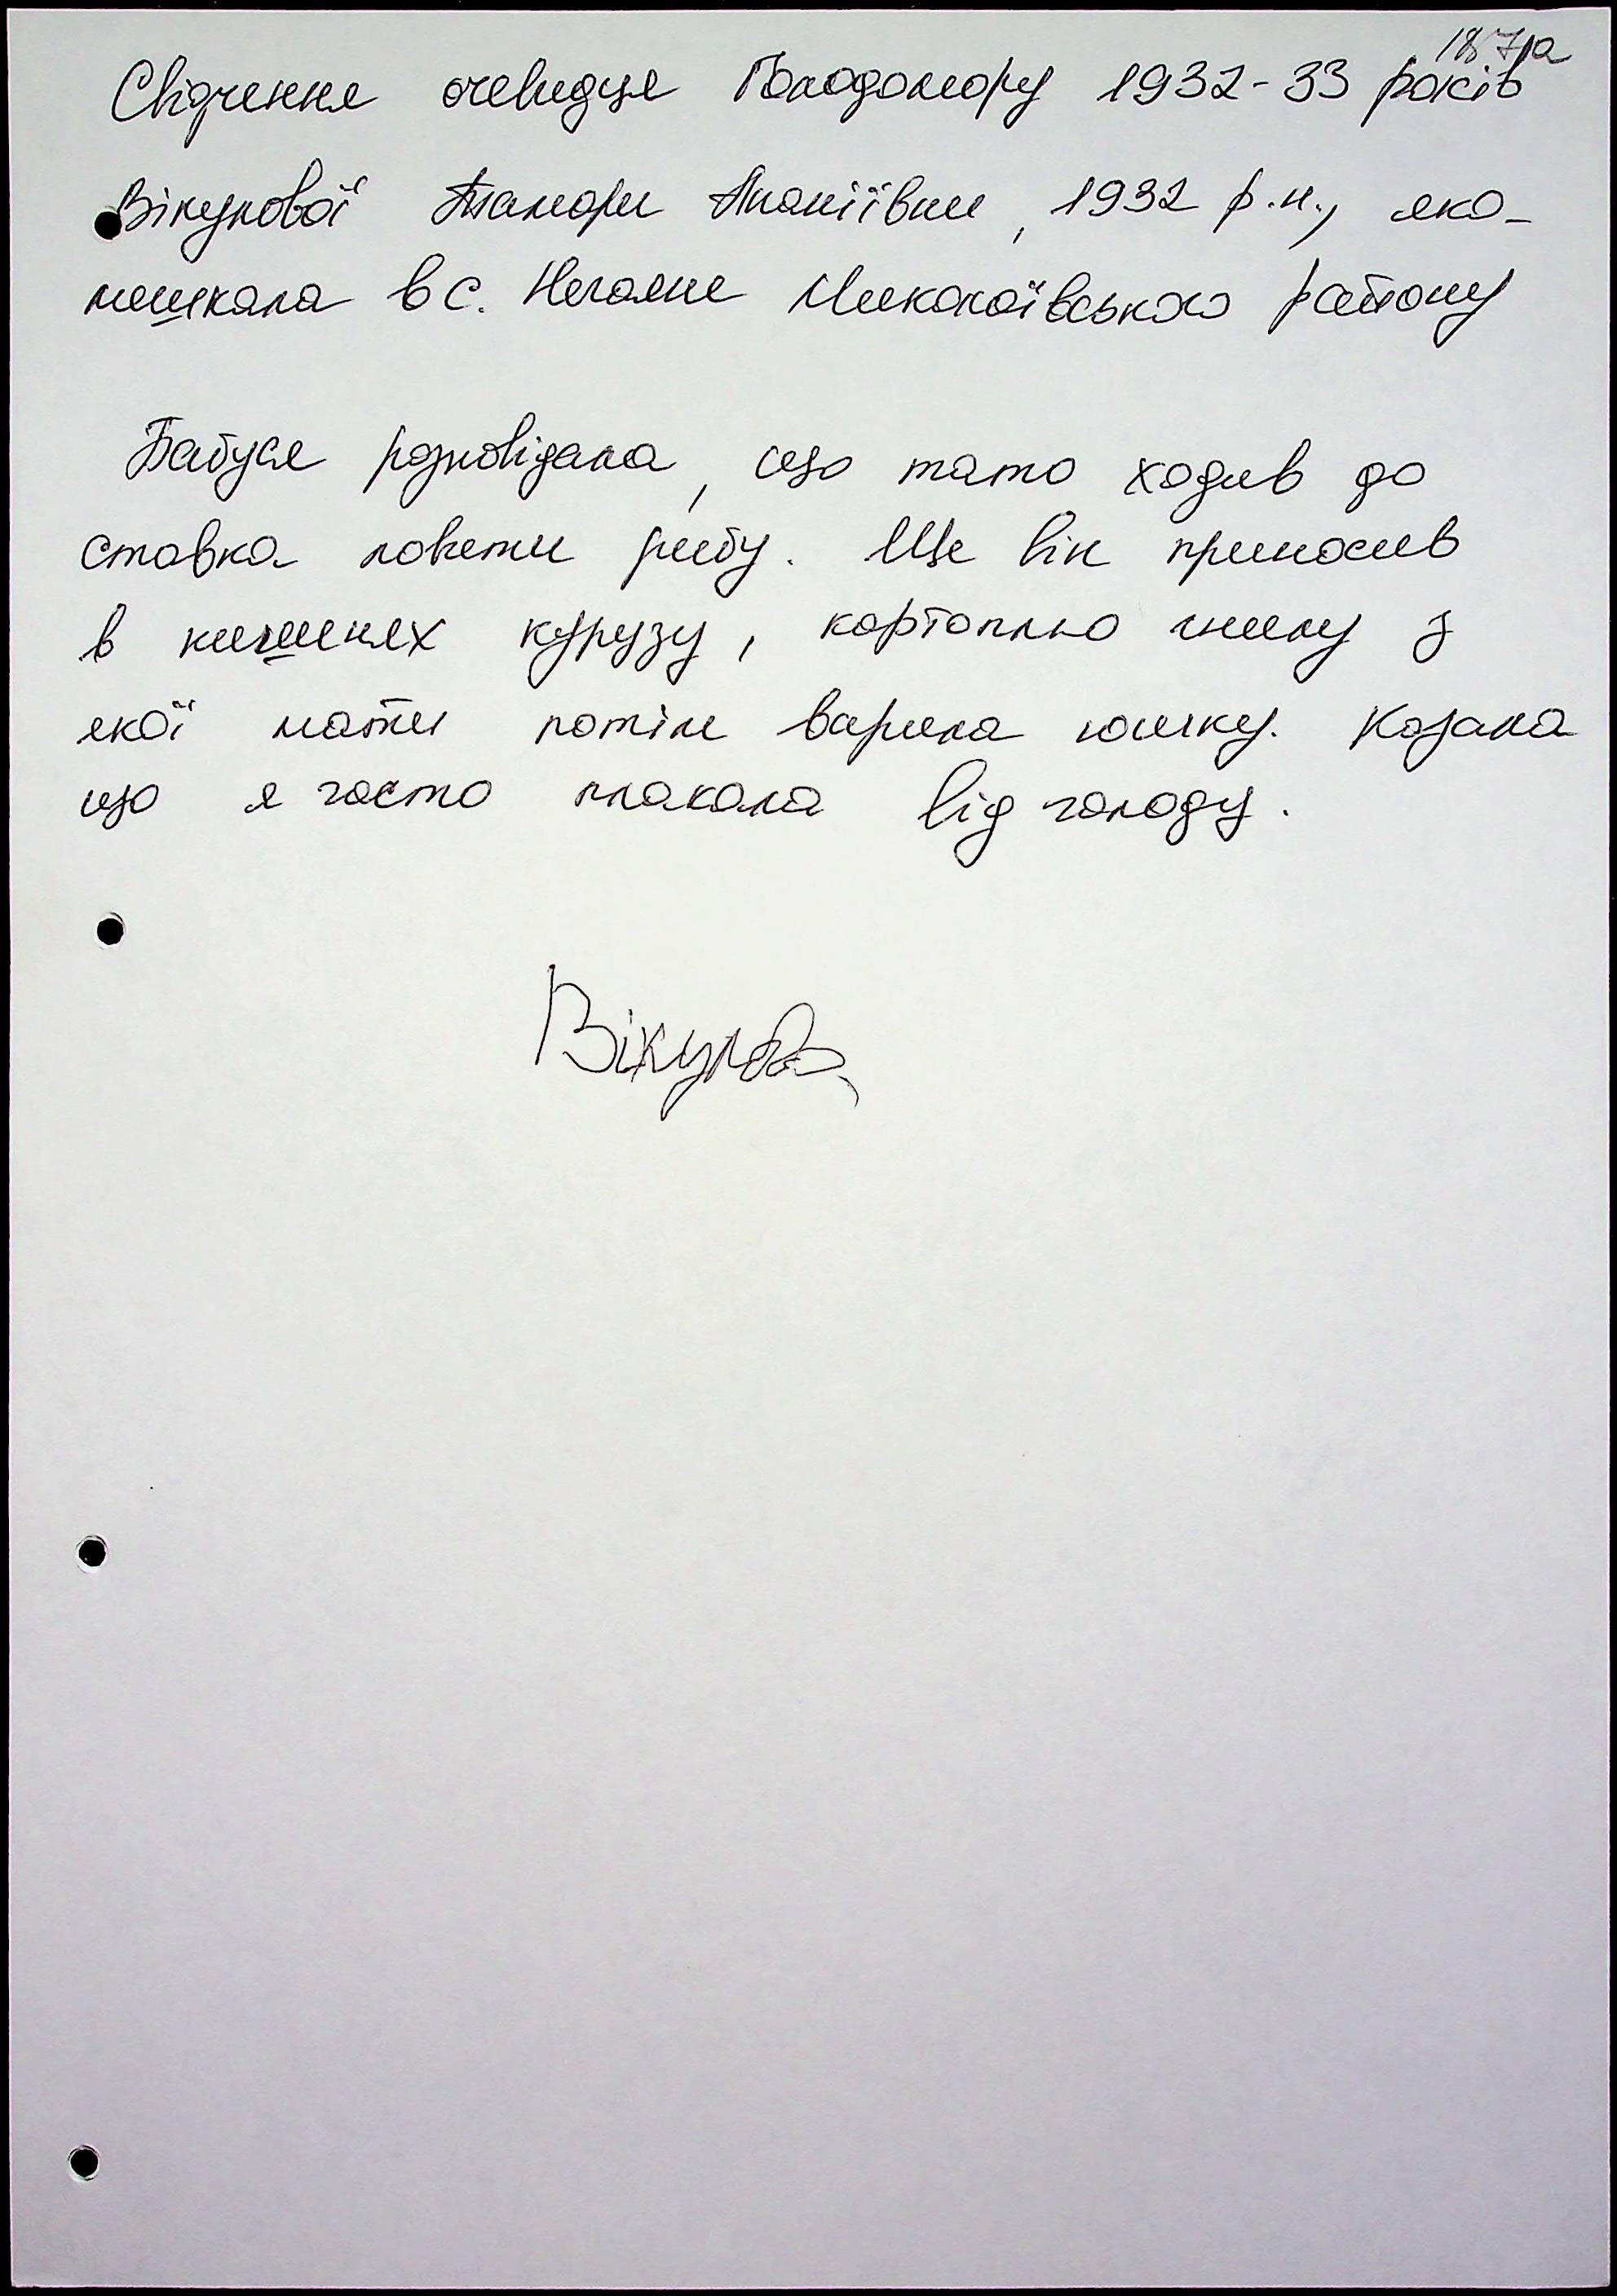 187а
Свідчення очевидця Голодомору 1932-33 років
Вікулової Тамари Ананіївни, 1932 р.н., яка
мешкала в с. Нечаяне Миколаївського району
Бабуся розповідала, що тато ходив до
ставка ловити рибу. Ще він приносив
в кишенях курузу, картоплю гнилу з
якої мати потім варила юшку. Казала
що я часто плакала від голоду.
Вікулова